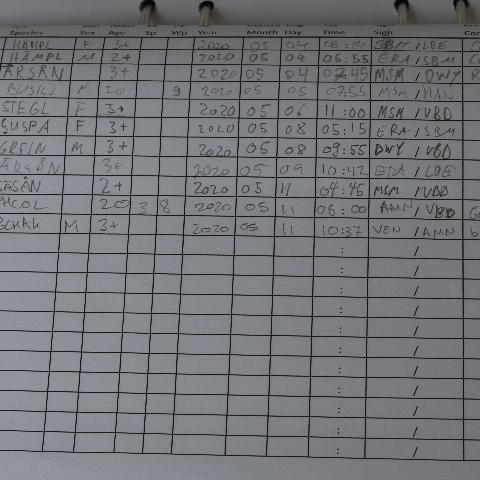 Species Sex Age Sp Wp Year Month Day Time Sign
HAMPL F 3+ 2020 05 04 SBM / LBE
HAMPL M 2+ 2020 05 04 06:55 ERA / SBM
ÄRSÅN 3+ 2020 05 04 07:45 MSM / DWY
M 20 9 2020 05 05 07:55 MSM / HAN
STEGL F 3+ 2020 05 06 11:00 MSM / VBD
GUSPA F 3+ 2020 05 08 05:15 ERA / SBM
GRFIN M 3+ 2020 05 08 09:55 DWY / VBD
ÄRSÅN 3+ 2020 05 09 10:42 ERA / LBE
SÅSÅN 2+ 2020 05 11 04:45 MSM / VBD
PHCOL 20 3 8 2020 05 11 06:00 AMN / VBD
BCHAK M 3+ 2020 05 11 10:37 VEN / AMN
: /
: /
: /
: /
: /
: /
: /
: /
: /
: /
: /